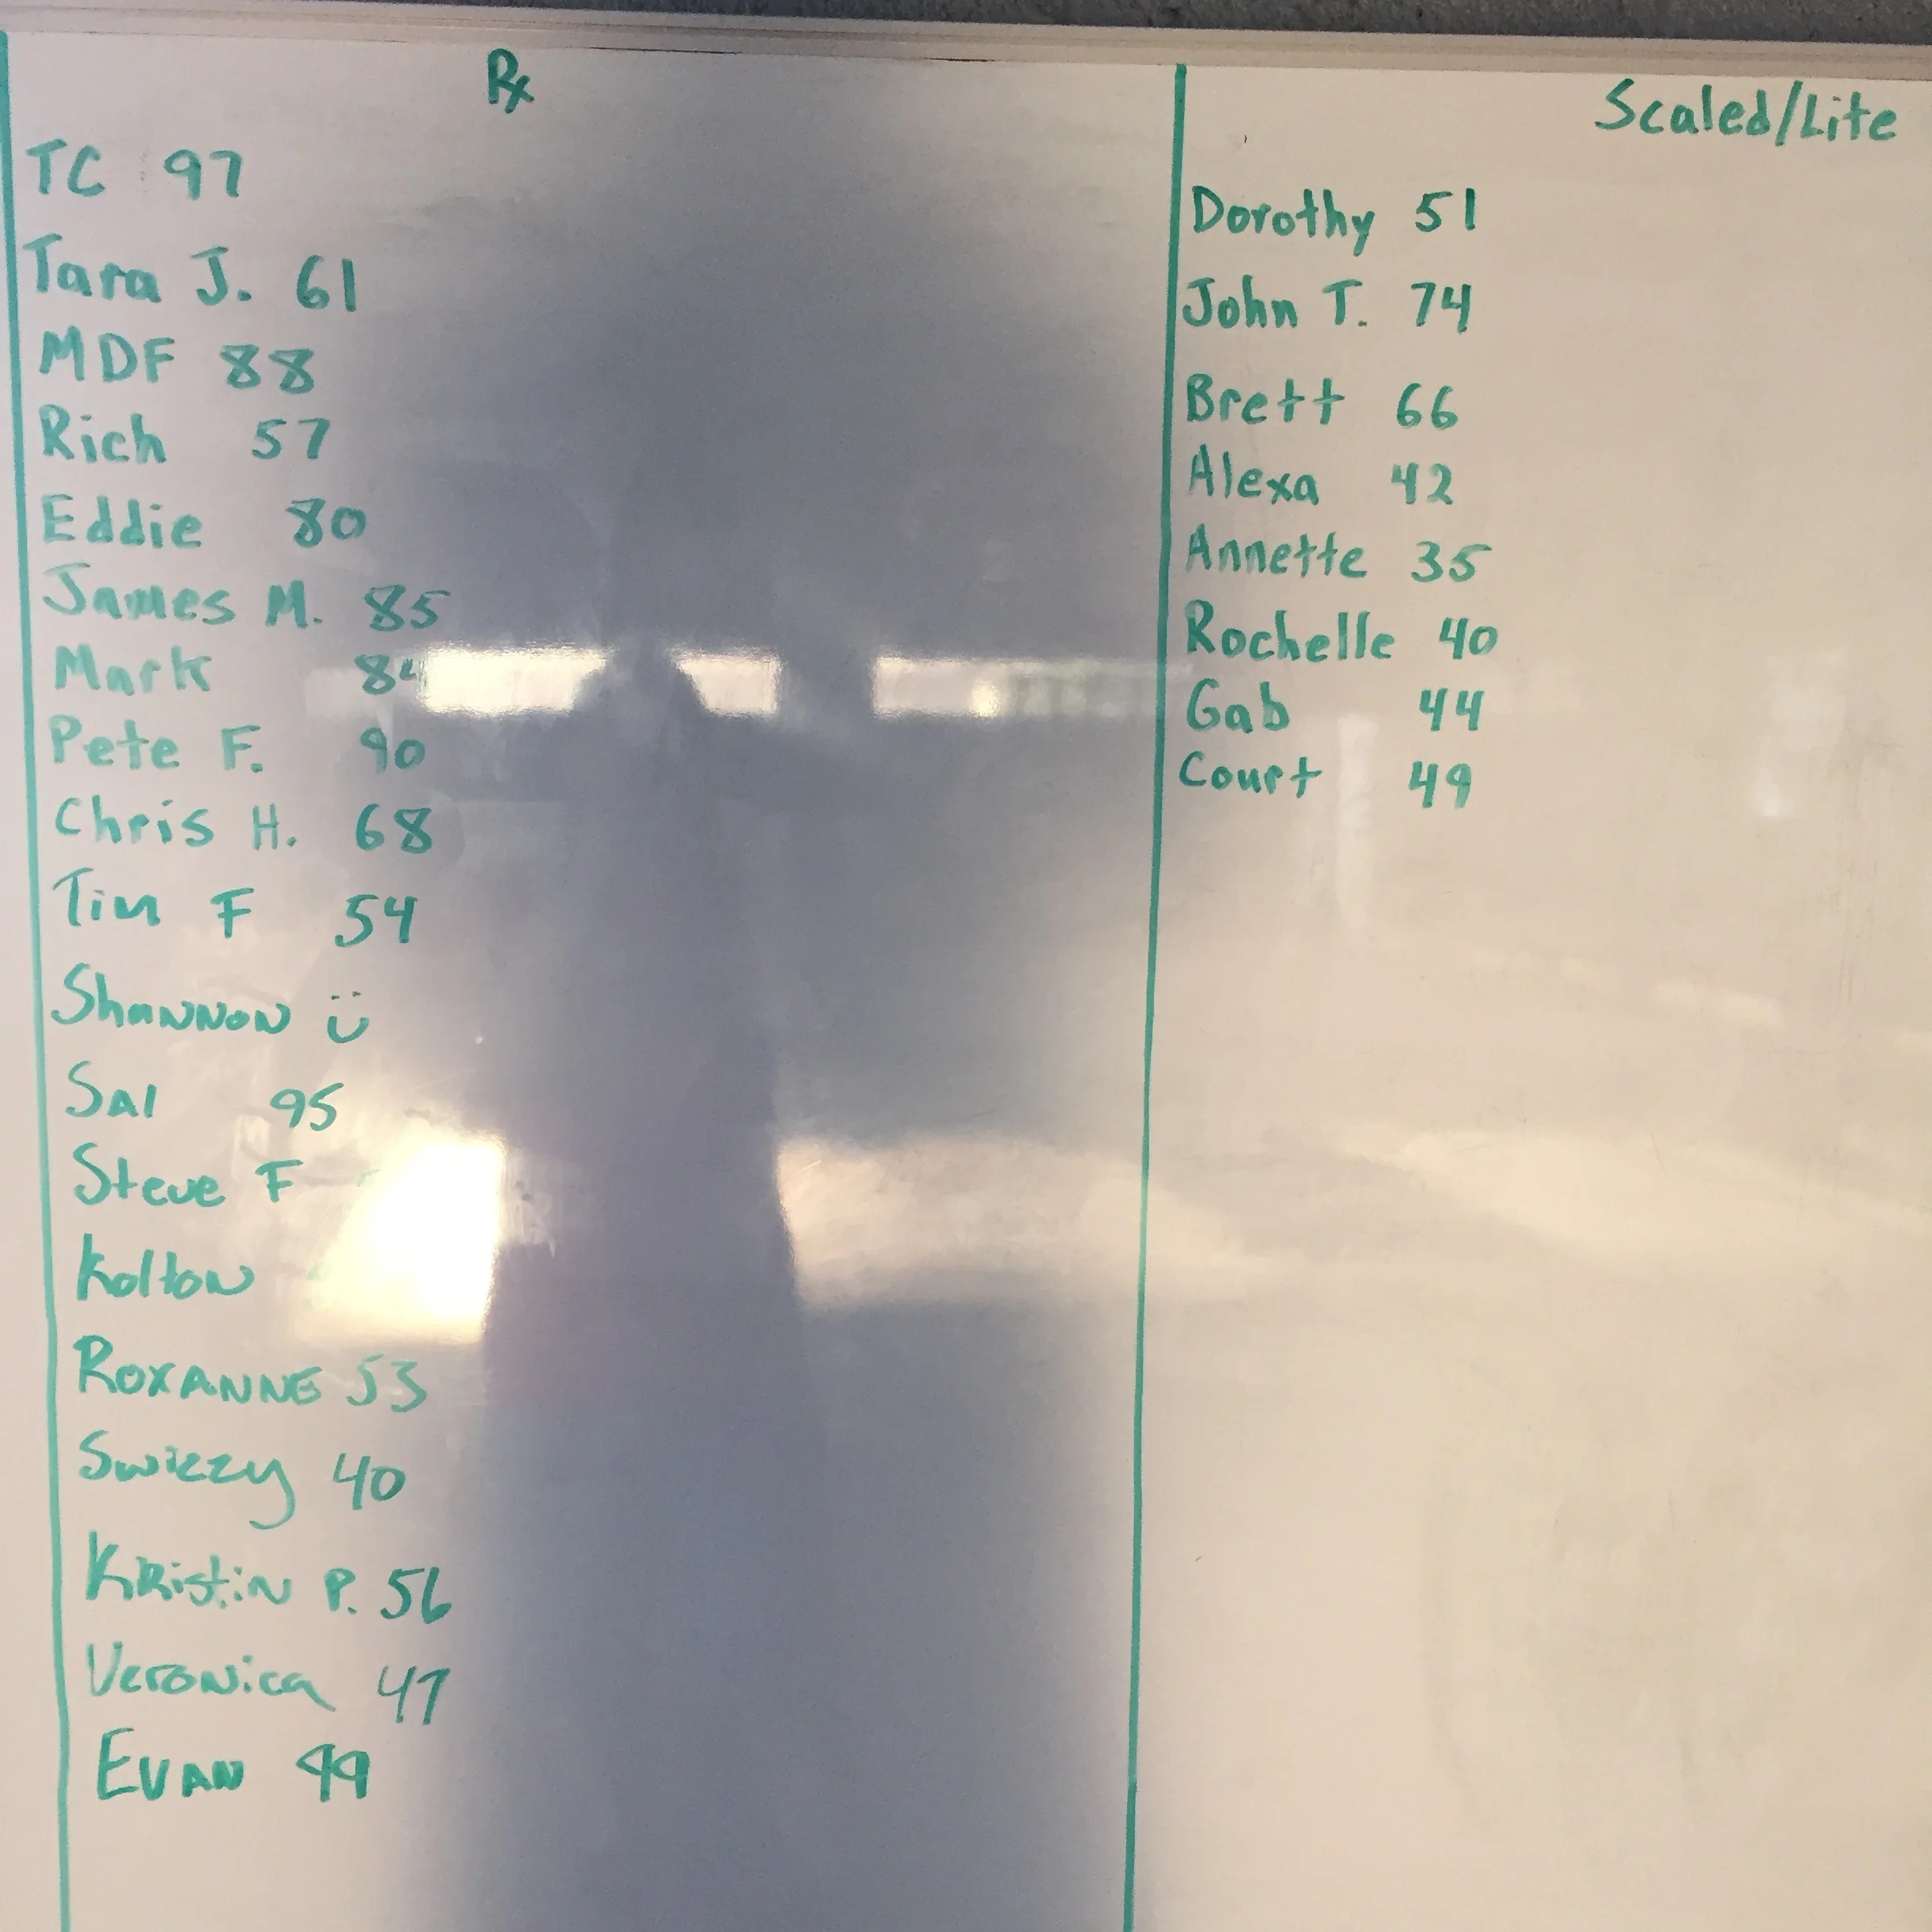 Rx
TC 97
Tara J. 61
MDF 88
Rich 57
Eddie 80
James M. 85
Mark 84
Pete F. 90
Chris H. 68
Tim F 54
Shannon
Sal 95
Steve F
Kolton
ROXANNE 53
Swizzy 40
Kristin P. 56
Veronica 47
EVAN
Scaled/Lite
Dorothy 51
John T. 74
Brett 66
Alexa 42
Annette 35
Rochelle 40
Gab 44
Court 49